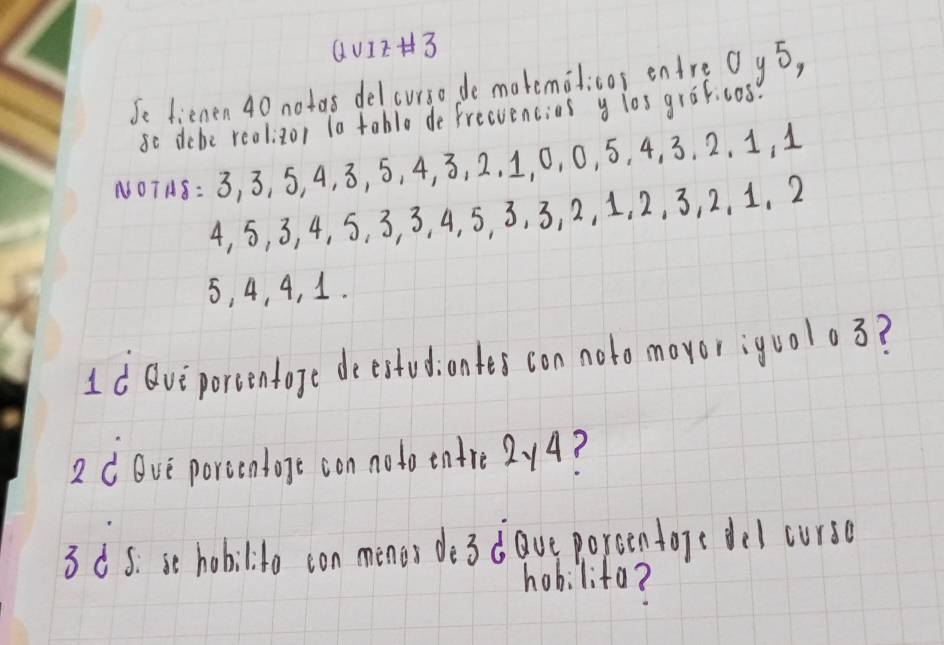 QUIZ #3
Se tienen 40 notas del curso de matemáticas entre 0 y 5,
se debe realizar la tabla de frecuencias y los gráficos.
NOTAS: 3, 3, 5, 4, 3, 5, 4, 3, 2, 1, 0, 0, 5, 4, 3, 2, 1, 1
4, 5, 3, 4, 5, 3, 3, 4, 5, 3, 3, 2, 1, 2, 3, 2, 1, 2
5, 4, 4, 1.
1 ¿Qué porcentaje de estudiantes con nota mayor igual a 3?
2 ¿Qué porcentaje con nota entre 2 y 4?
3 ¿Si se habilita con menos de 3 ¿Que porcentaje del curso
habilita?